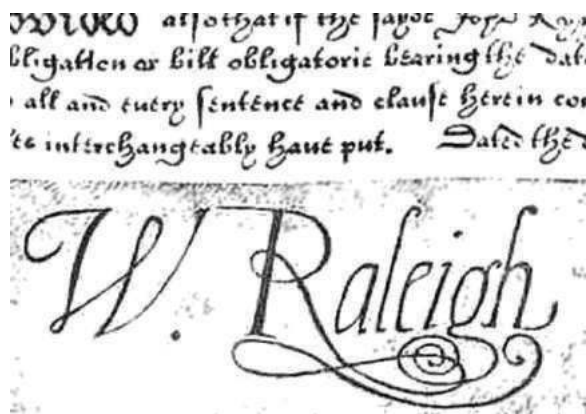 also that if the sayde John
obligation or bill obligatorie bearing the date
all and every sentence and clause herein
interchangeably have put. Dated the
W. Raleigh